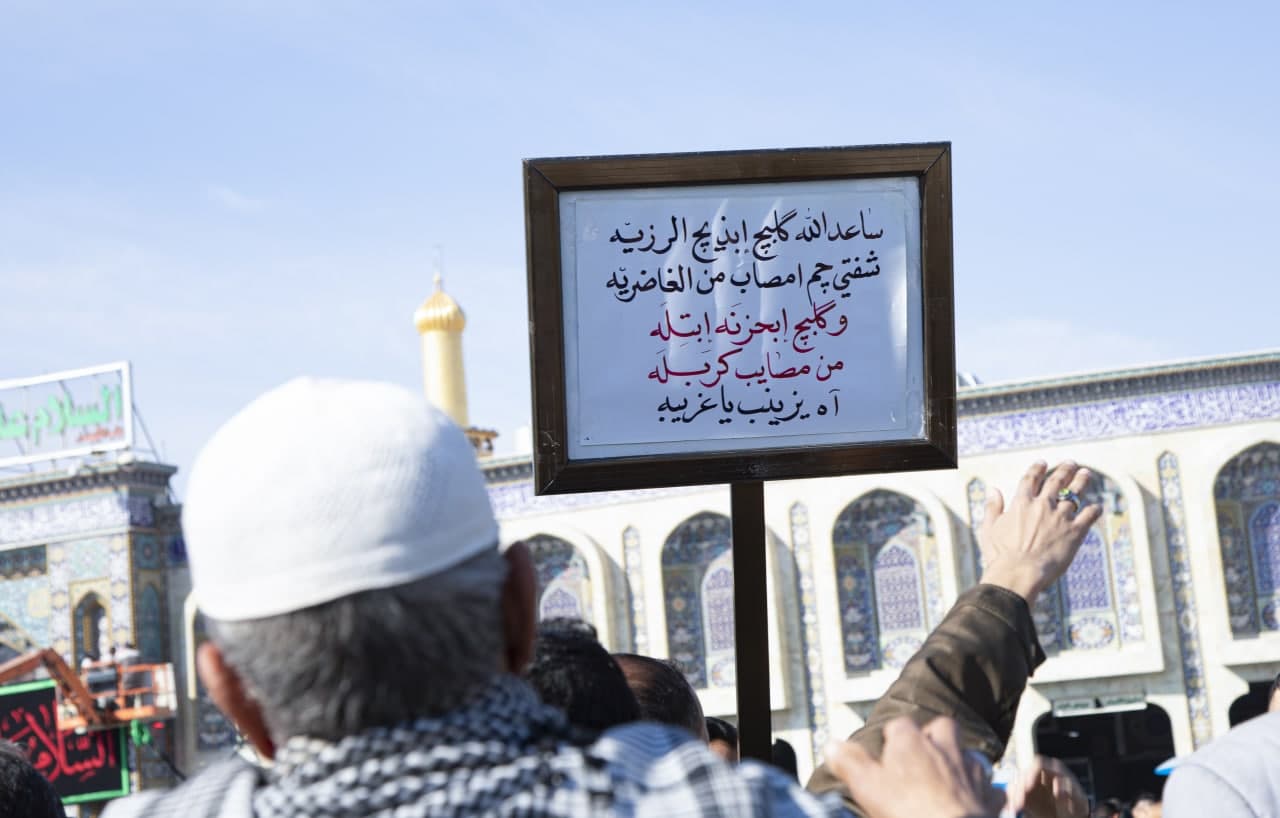 ساعد الله گلبچ إبذيچ الرزيّه
شفتي چم امصاب من الغاضريّه
وگلبچ إبحزنَه إبتِلَه
من مصايب كربَلَه
آه يزينب يا غريبه
السلام
السلام